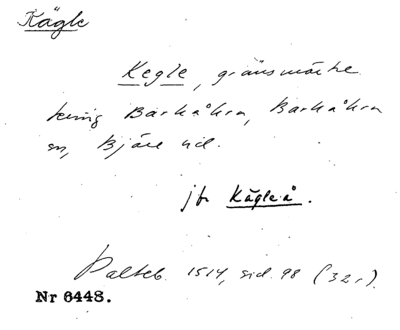 Kägle
Kegle, gränsmärke
kring Barkåkra, Barkåkra
sn, Bjäre hd.
jfr Kägleå.
Palteb. 1514, sid. 98 (32r).
Nr 6448.